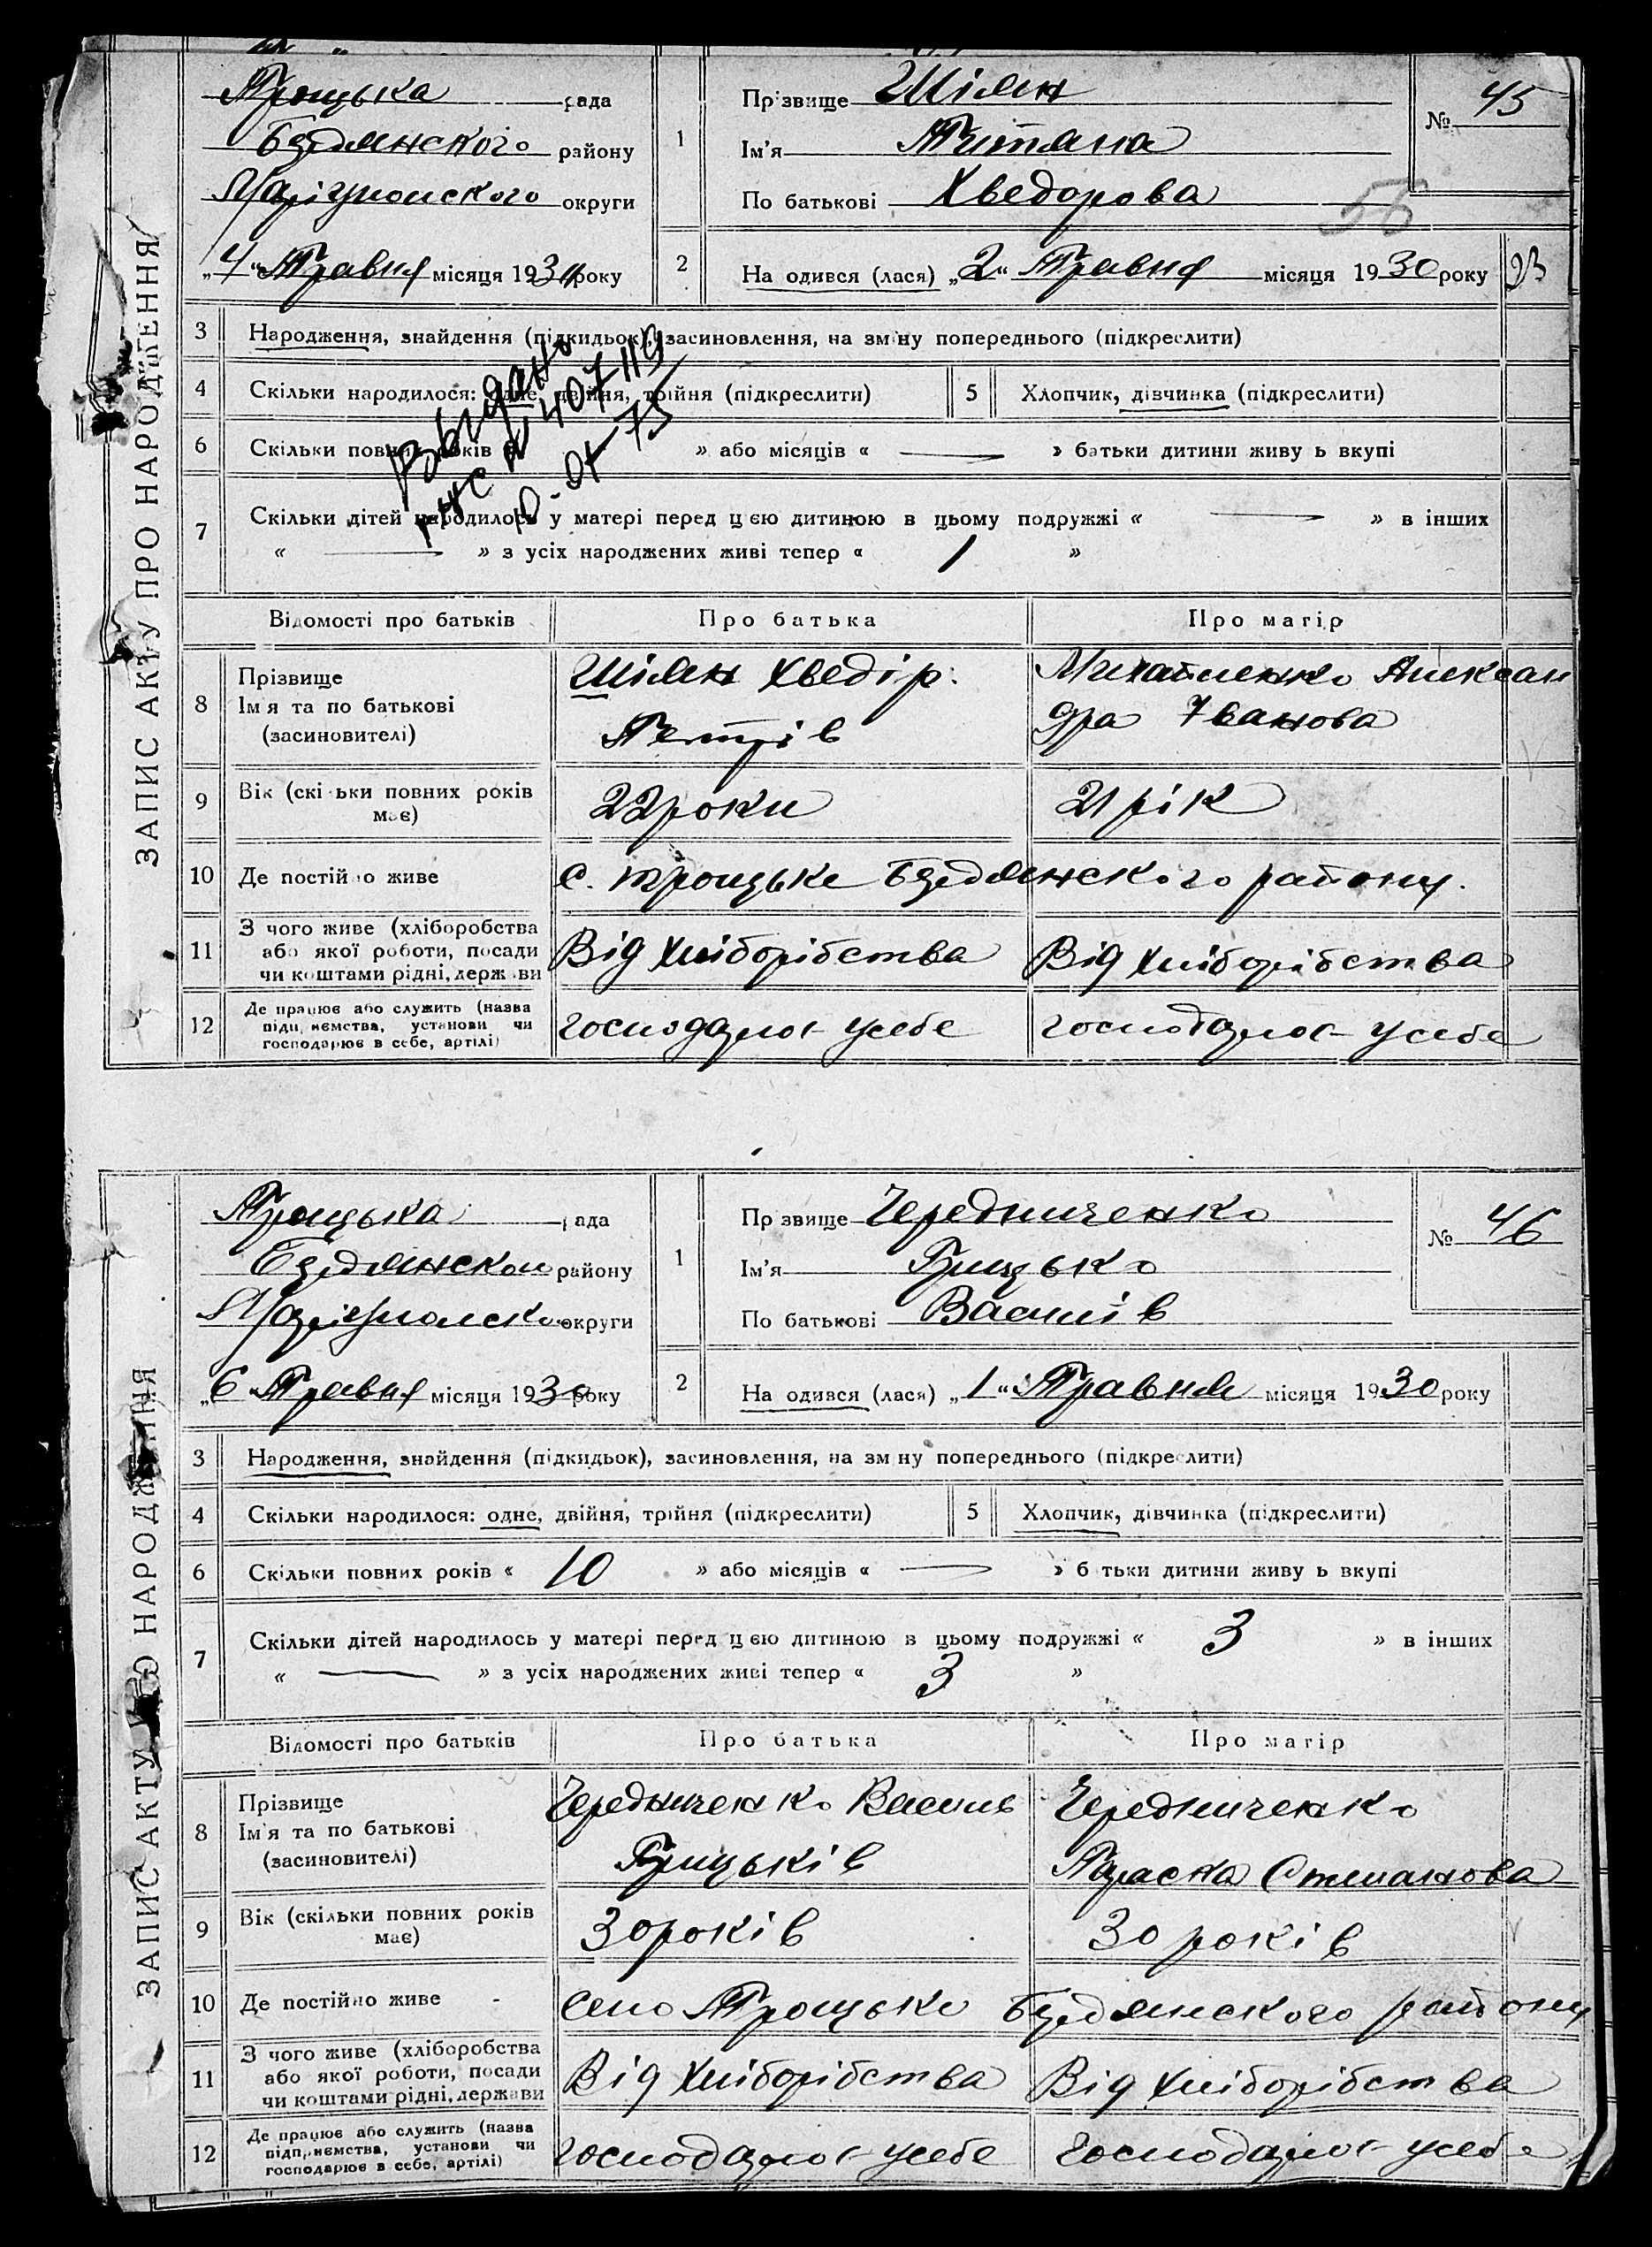 ЗАПИС АКТУ ПРО НАРОДЖЕННЯ
Троцька рада
Будянского району
Маріупольского округи
„4“ Травня місяця 1930 року
1
Прізвище Шіян
Ім'я Титяна
По батькові Хведорова
№ 45
56
2
На одився (лася) „2“ Травня місяця 1930 року
93
3 Народження, знайдення (підкидьок), засиновлення, на зм ну попереднього (підкреслити)
4 Скільки народилося: одне, двійня, трійня (підкреслити) 5 Хлопчик, дівчинка (підкреслити)
6 Скільки повних років « » або місяців « — » батьки дитини живу ь вкупі
7 Скільки дітей народилось у матері перед цією дитиною в цьому подружжі « — » в інших
« — » з усіх народжених живі тепер « 1 »
Выдано
№ 407119
10-01-75
Відомості про батьків Про батька Про матір
8 Прізвище Ім'я та по батькові (засиновителі)
Шіян Хведір
Петрів
Михайленко Алексан
дра Іванова
9 Вік (скі ьки повних років має) 22 роки 21 рік
10 Де постійно живе с. Троцьке Будянского району.
11 З чого живе (хліборобства або якої роботи, посади чи коштами рідні, держ ви Від хліборібства Від хліборібства
12 Де працює або служить (назва підп, иємства, установи чи господарює в себе, артілі) господарює у себе господарює у себе
ЗАПИС АКТУ ПРО НАРОДЖЕННЯ
Троцька рада
Будянского району
Маріупольско округи
„6 Травня місяця 1930 року
1
Пр звище Чередниченко
Ім'я Грицько
По батькові Василів
№ 46
2
На одився (лася) „1“ Травня місяця 1930 року
3 Народження, знайдення (підкидьок), засиновлення, на зм ну попереднього (підкреслити)
4 Скільки народилося: одне, двійня, трійня (підкреслити) 5 Хлопчик, дівчинка (підкреслити)
6 Скільки повних років « 10 » або місяців « — » б тьки дитини живу ь вкупі
7 Скільки дітей народилось у матері перед цією дитиною в цьому подружжі « 3 » в інших
« — » з усіх народжених живі тепер « 3 »
Відомості про батьків Про батька Про матір
8 Прізвище Ім'я та по батькові (засиновителі)
Чередниченко Василь
Грицьків
Чередниченко
Параска Степанова
9 Вік (скільки повних років має) 30 років 30 років
10 Де постійно живе - село Троцьке Будянского району
11 З чого живе (хліборобства або якої роботи, посади чи коштами рідні, держави Від хліборібства Від хліборібства
12 Де працює або служить (назва підприємства, установи чи господарює в себе, артілі) господарює у себе господарює у себе